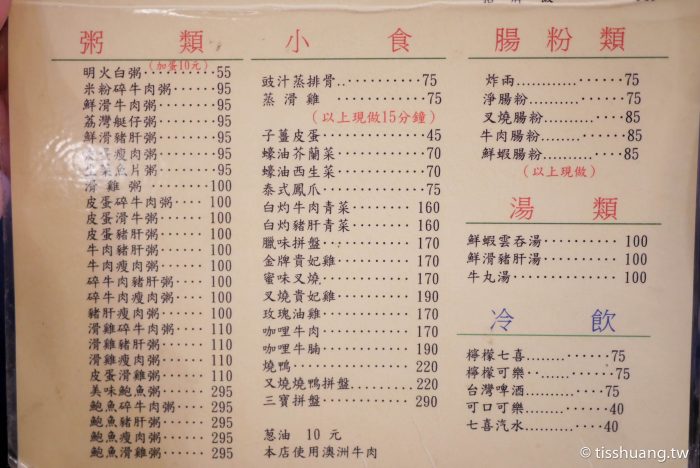 粥類
(加蛋10元)
明火白粥 55
米粉碎牛肉粥 95
鮮滑牛肉粥 95
荔灣艇仔粥 95
鮮滑豬肝粥 95
瘦肉粥 95
魚片粥 95
滑雞粥 100
皮蛋碎牛肉粥 100
皮蛋滑牛粥 100
皮蛋豬肝粥 100
牛肉豬肝粥 100
牛肉瘦肉粥 100
碎牛肉豬肝粥 100
碎牛肉瘦肉粥 100
豬肝瘦肉粥 100
滑雞碎牛肉粥 110
滑雞豬肝粥 110
滑雞瘦肉粥 110
皮蛋滑雞粥 110
美味鮑魚粥 295
鮑魚碎牛肉粥 295
鮑魚豬肝粥 295
鮑魚瘦肉粥 295
鮑魚滑雞粥 295
小食
豉汁蒸排骨 75
蒸滑雞 75
(以上現做15分鐘)
子薑皮蛋 45
蠔油芥蘭菜 70
蠔油西生菜 70
泰式鳳爪 75
白灼牛肉青菜 160
白灼豬肝青菜 160
臘味拼盤 170
金牌貴妃雞 170
蜜味叉燒 170
叉燒貴妃雞 190
玫瑰油雞 170
咖哩牛肉 170
咖哩牛腩 190
燒鴨 220
叉燒燒鴨拼盤 220
三寶拼盤 290
蔥油 10 元
本店使用澳洲牛肉
腸粉類
炸兩 75
淨腸粉 75
叉燒腸粉 85
牛肉腸粉 85
鮮蝦腸粉 85
(以上現做)
湯類
鮮蝦雲吞湯 100
鮮滑豬肝湯 100
牛丸湯 100
冷飲
檸檬七喜 75
檸檬可樂 75
台灣啤酒 75
可口可樂 40
七喜汽水 40
© tisshuang.tw